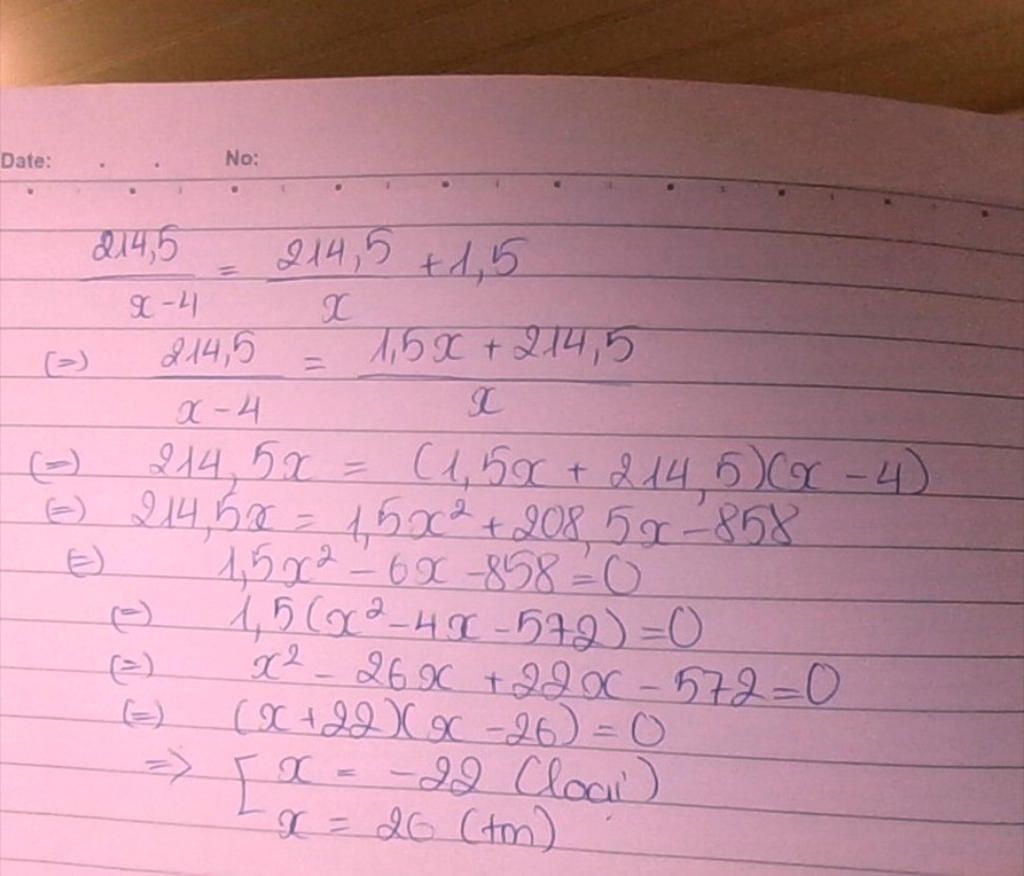 Date: . . No:
214,5/x-4 = 214,5/x + 1,5
(=) 214,5/x-4 = 1,5x + 214,5/x
(=) 214,5x = (1,5x + 214,5)(x - 4)
(=) 214,5x = 1,5x² + 208,5x - 858
(=) 1,5x² - 6x - 858 = 0
(=) 1,5(x² - 4x - 572) = 0
(=) x² - 26x + 22x - 572 = 0
(=) (x + 22)(x - 26) = 0
=> [ x = -22 (loại)
x = 26 (tm)